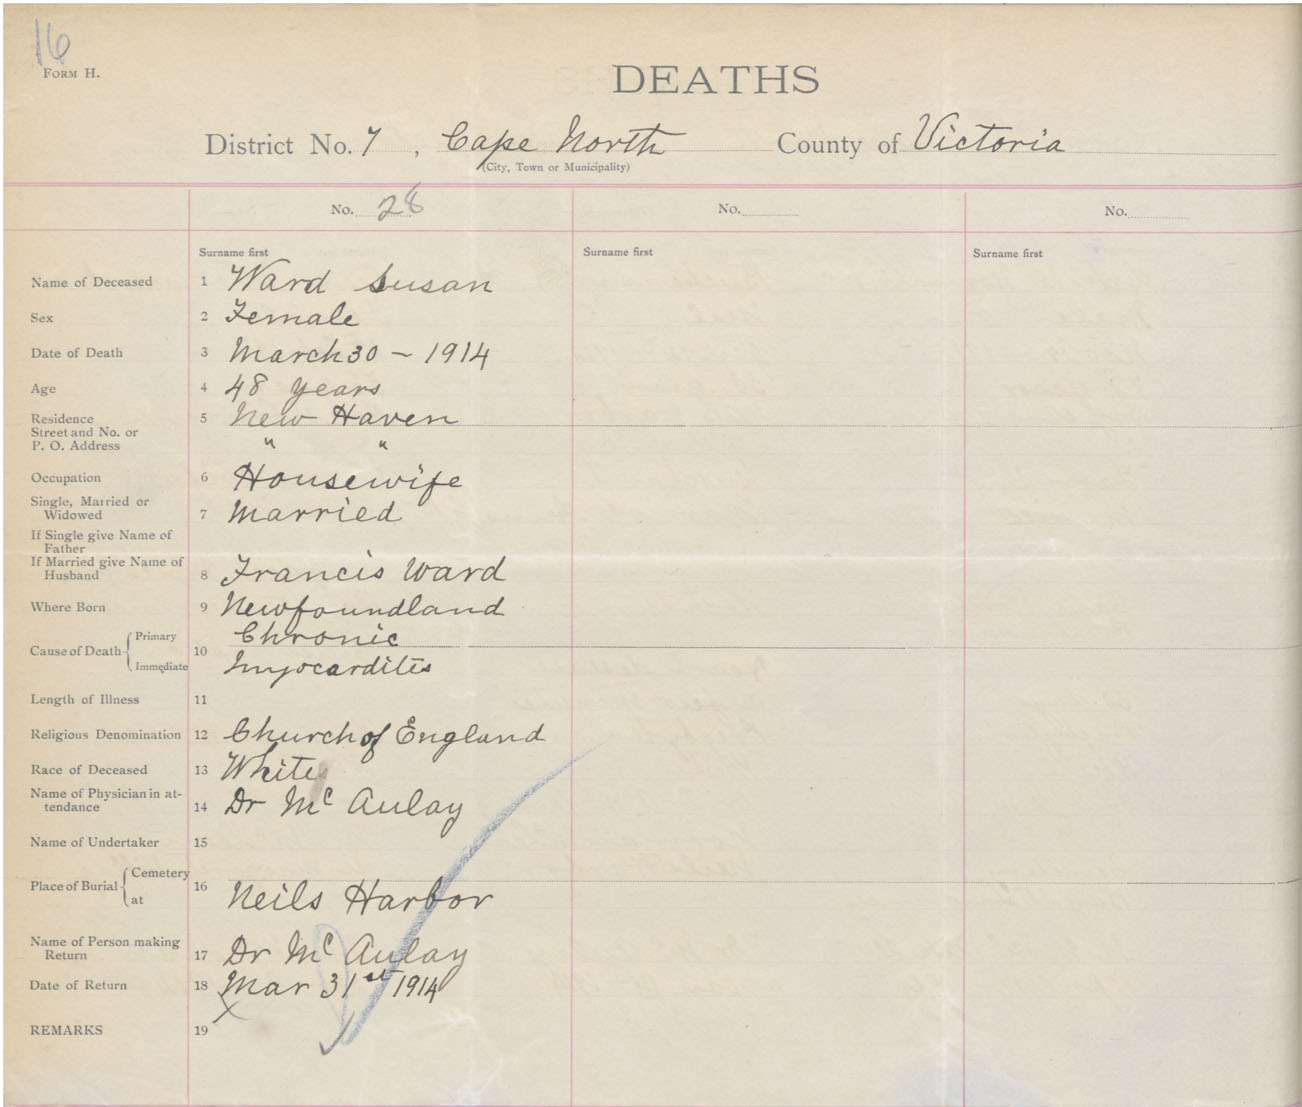 16
FORM H.
DEATHS
District No. 7, Cape North County of Victoria
(City, Town or Municipality)
No. 28 No. No.
Surname first Surname first Surname first
Name of Deceased 1 Ward Susan
Sex 2 Female
Date of Death 3 March 30 - 1914
Age 4 48 years
Residence 5 New Haven
Street and No. or
P. O. Address " "
Occupation 6 Housewife
Single, Married or
Widowed 7 Married
If Single give Name of
Father
If Married give Name of
Husband 8 Francis Ward
Where Born 9 Newfoundland
Cause of Death 10 Primary Chronic
Immediate Myocardites
Length of Illness 11
Religious Denomination 12 Church of England
Race of Deceased 13 White
Name of Physician in at-
tendance 14 Dr Mc Aulay
Name of Undertaker 15
Place of Burial 16 Cemetery
at Neils Harbor
Name of Person making
Return 17 Dr Mc Aulay
Date of Return 18 Mar 31st 1914
REMARKS 19